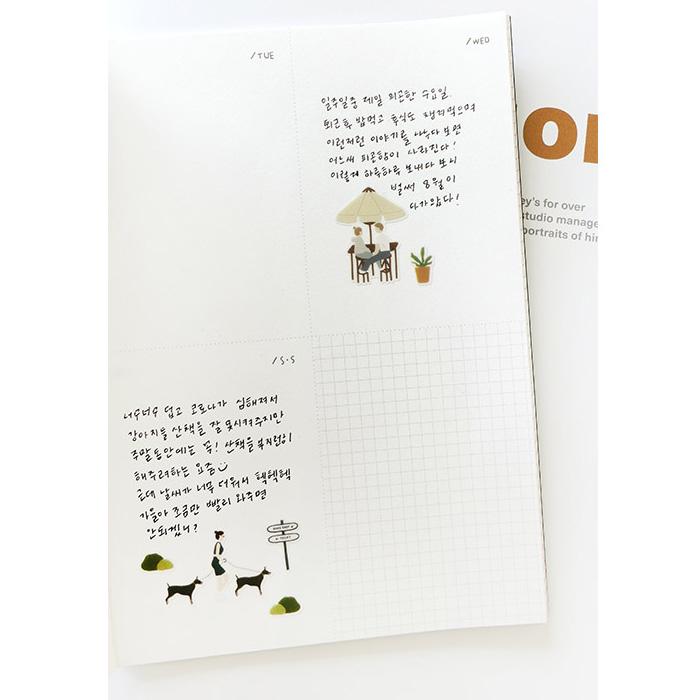 /TUE
/WED
일주일중 제일 피곤한 수요일.
퇴근후 밥먹고 후식도 챙겨먹으며
이런저런 이야기를 나누다 보면
어느새 피곤함이 사라진다!
이렇게 하루하루 보내다 보니
벌써 8월이
다가왔다!
/S.S
너무너무 덥고 코로나가 심해져서
강아지들 산책을 잘 못시켜주지만
주말동안에는 꼭! 산책을 부지런히
해주려하는 요즘
근데 날씨가 너무 더워서 헥헥헥
가을아 조금만 빨리 와주면
안되겠니?
or
ey's for over
studio manage
portraits of hir